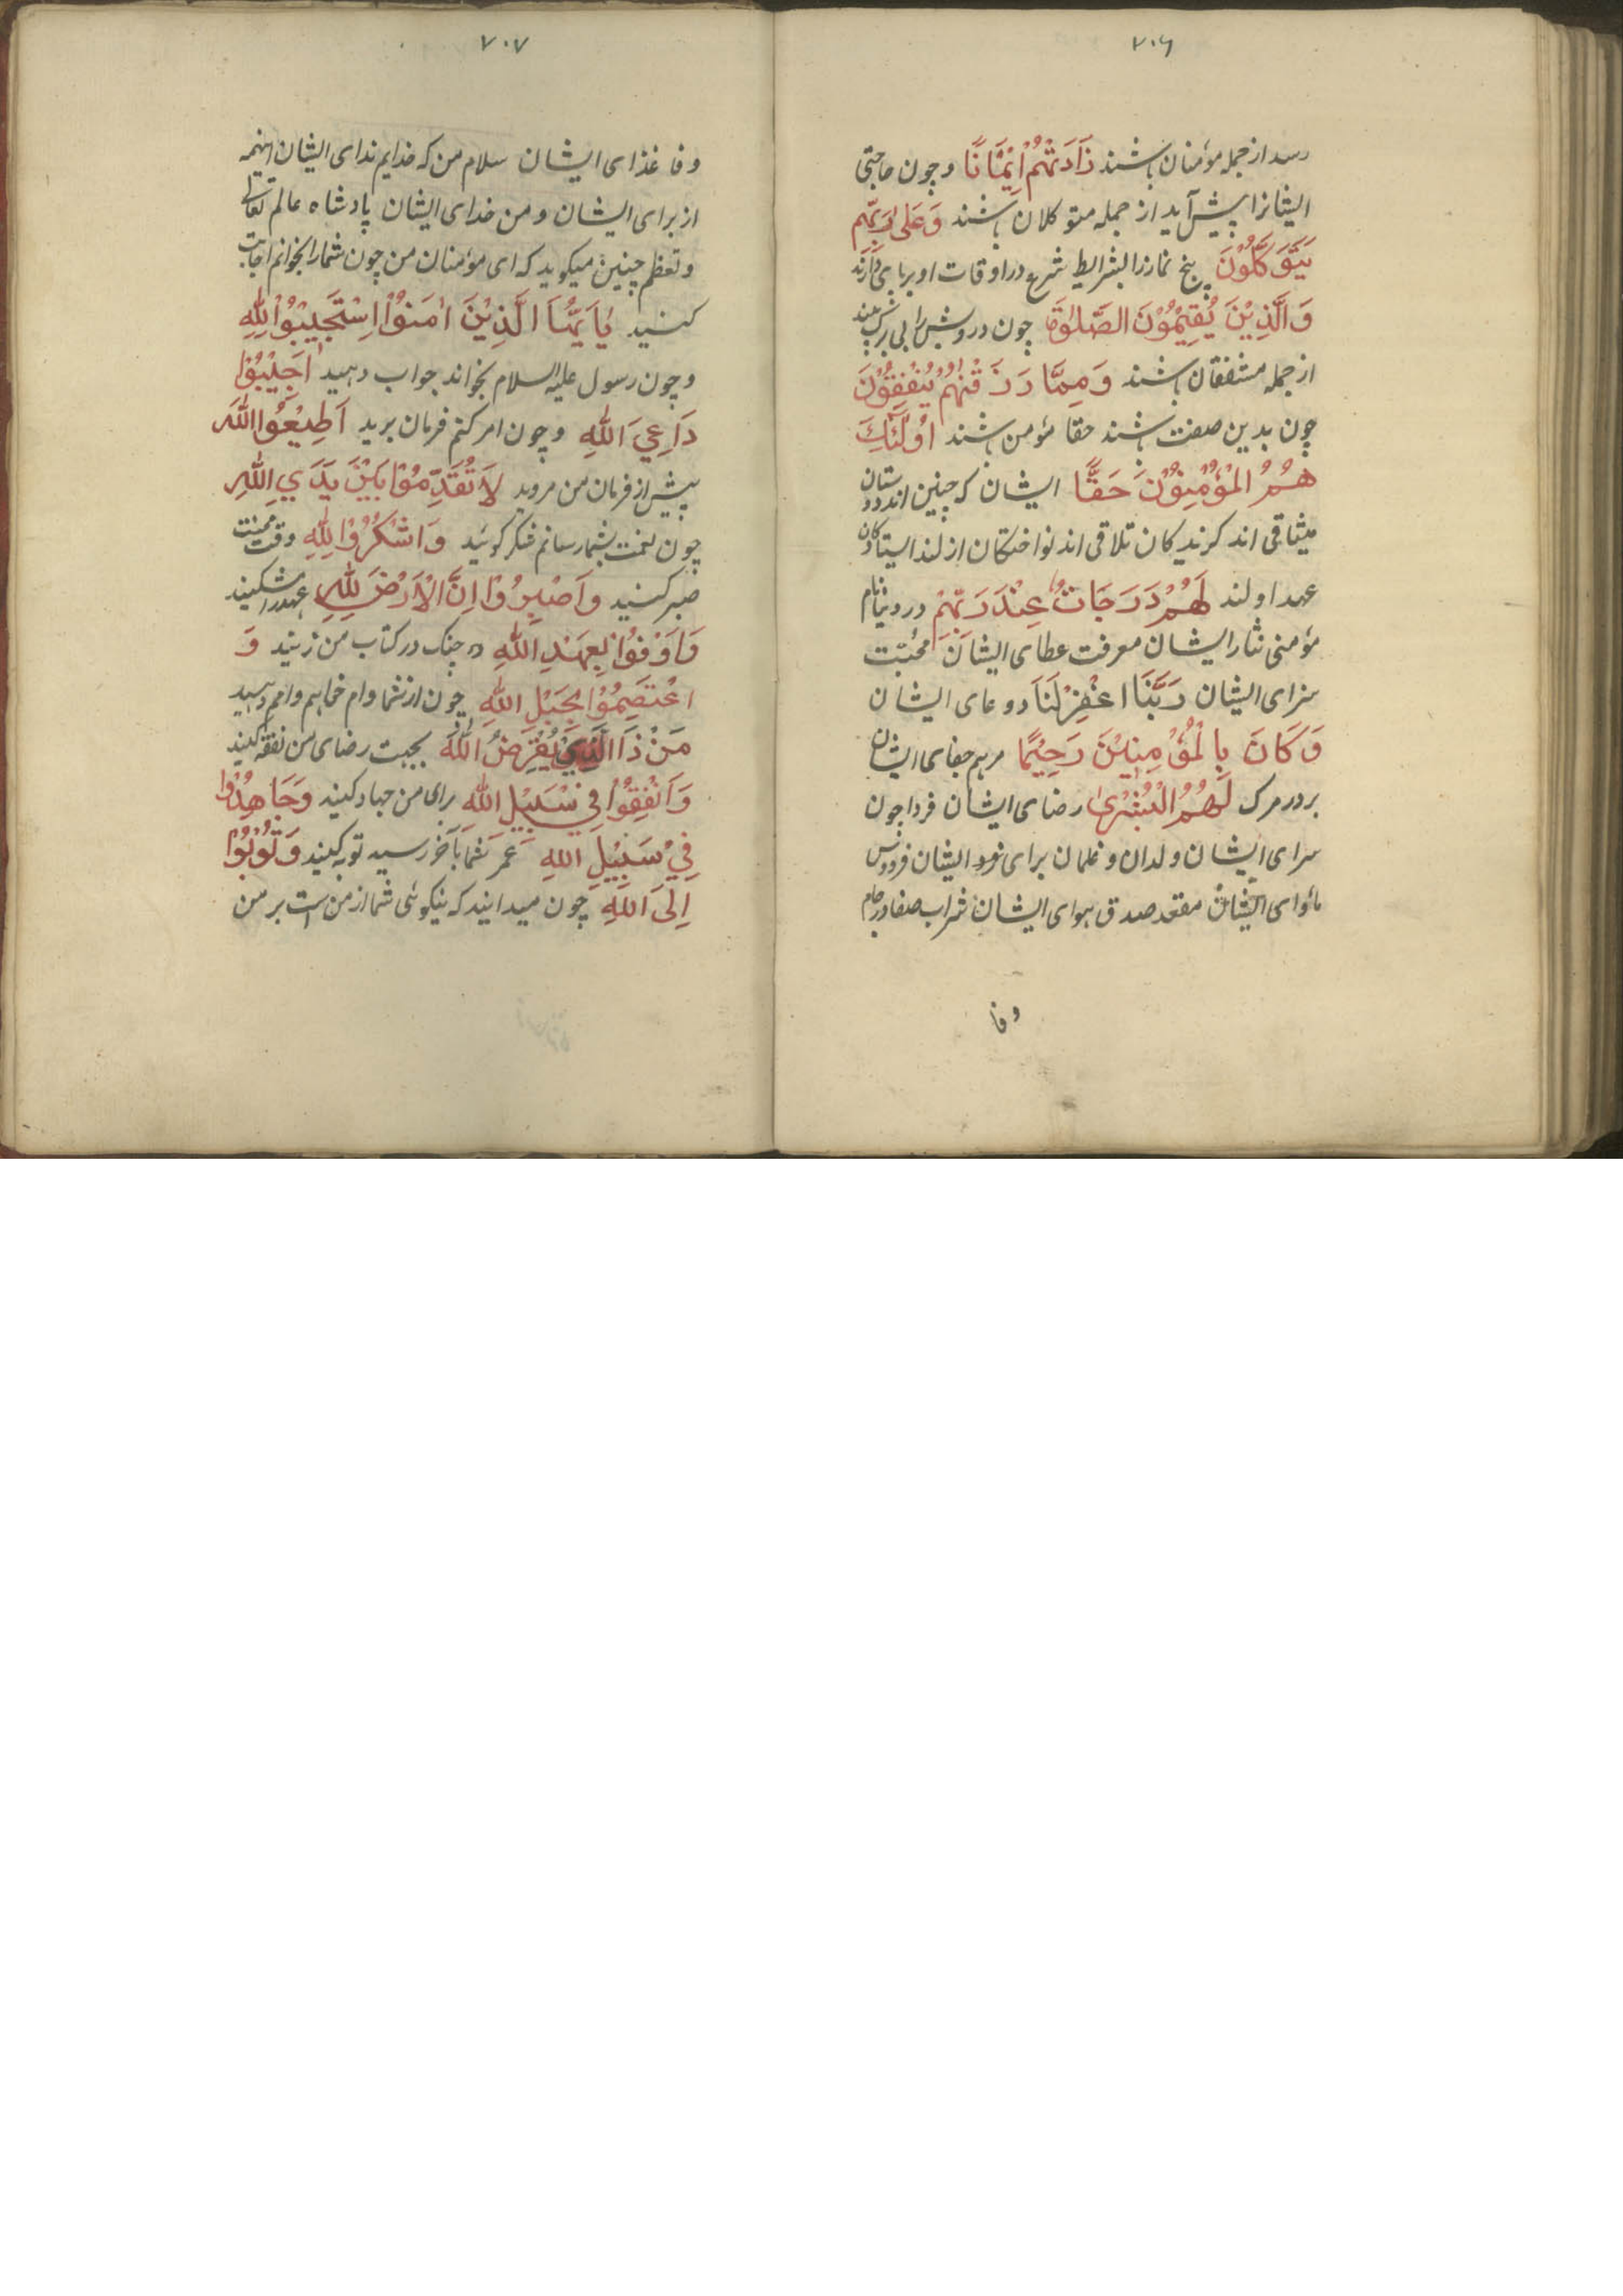 ۷۰۶
رسد از جمله مؤمنان باشند زَادَتْهُمْ اِيْمَانًا و چون حاجتی
ایشانرا پیش آید از جمله متوکلان باشند وَعَلٰى رَبِّهِمْ
يَتَوَكَّلُوْنَ پنج نماز را بشرایط شرع در اوقات او بر پای دارند
وَالَّذِيْنَ يُقِيْمُوْنَ الصَّلٰوةَ چون درویش را بی برک بینند
از جمله منفقان باشند وَمِمَّا رَزَقْنٰهُمْ يُنْفِقُوْنَ
چون بدین صفت باشند حقا مؤمن باشند اُولٰٓئِكَ
هُمُ الْمُؤْمِنُوْنَ حَقًّا ایشان که چنین اند دوستان
میثاقی اند کزیدکان تلاقی اند نواختکان ازلند ایستادکان
عهد اولند لَهُمْ دَرَجَاتٌ عِنْدَ رَبِّهِمْ در دنیا نام
مؤمنی نثار ایشان معرفت عطای ایشان محبّت
سزای ایشان رَبَّنَا اغْفِرْ لَنَا دوعای ایشان
وَكَانَ بِالْمُؤْمِنِيْنَ رَحِيْمًا مرهم جفای ایشان
بر در مرک لَهُمُ الْبُشْرٰى رضای ایشان فردا چون
سرای ایشان ولدان و غلمان برای نزد ایشان فردوس
مأوای ایشان مقعد صدق هوای ایشان شراب صفا در جام
وفا
۷۰۷
وفا غذای ایشان سلام من که خدایم ندای ایشان اینهمه
از برای ایشان و من خدای ایشان پادشاه عالم تعالی
و تعظم چنین میکوید که ای مؤمنان من چون شمارا بخوانم اجابت
کنید يَا اَيُّهَا الَّذِيْنَ اٰمَنُوْا اِسْتَجِيْبُوْا لِلّٰهِ
و چون رسول علیه السلام بخواند جواب دهید اَجِيْبُوْا
دَاعِيَ اللّٰهِ و چون امر کنم فرمان برید اَطِيْعُوا اللّٰهَ
پیش از فرمان من مروید لَا تُقَدِّمُوْا بَيْنَ يَدَيِ اللّٰهِ
چون نعمت بشما رسانم شکر کوئید وَاشْكُرُوْا لِلّٰهِ وقت محنت
صبر کنید وَاصْبِرُوْا اِنَّ الْاَرْضَ لِلّٰهِ عهد را مشکنید
وَاَوْفُوْا بِعَهْدِ اللّٰهِ و چنک در کتاب من زنید وَ
اعْتَصِمُوْا بِحَبْلِ اللّٰهِ چون از شما وام خواهم وامم دهید
مَنْ ذَا الَّذِيْ يُقْرِضُ اللّٰهَ بجهت رضای من نفقه کنید
وَاَنْفِقُوْا فِيْ سَبِيْلِ اللّٰهِ برای من جهاد کنید وَجَاهِدُوْا
فِيْ سَبِيْلِ اللّٰهِ عمر شما بآخر رسید توبه کنید وَتُوْبُوْا
اِلَى اللّٰهِ چون میدانید که نیکوئی شما از من است بر من